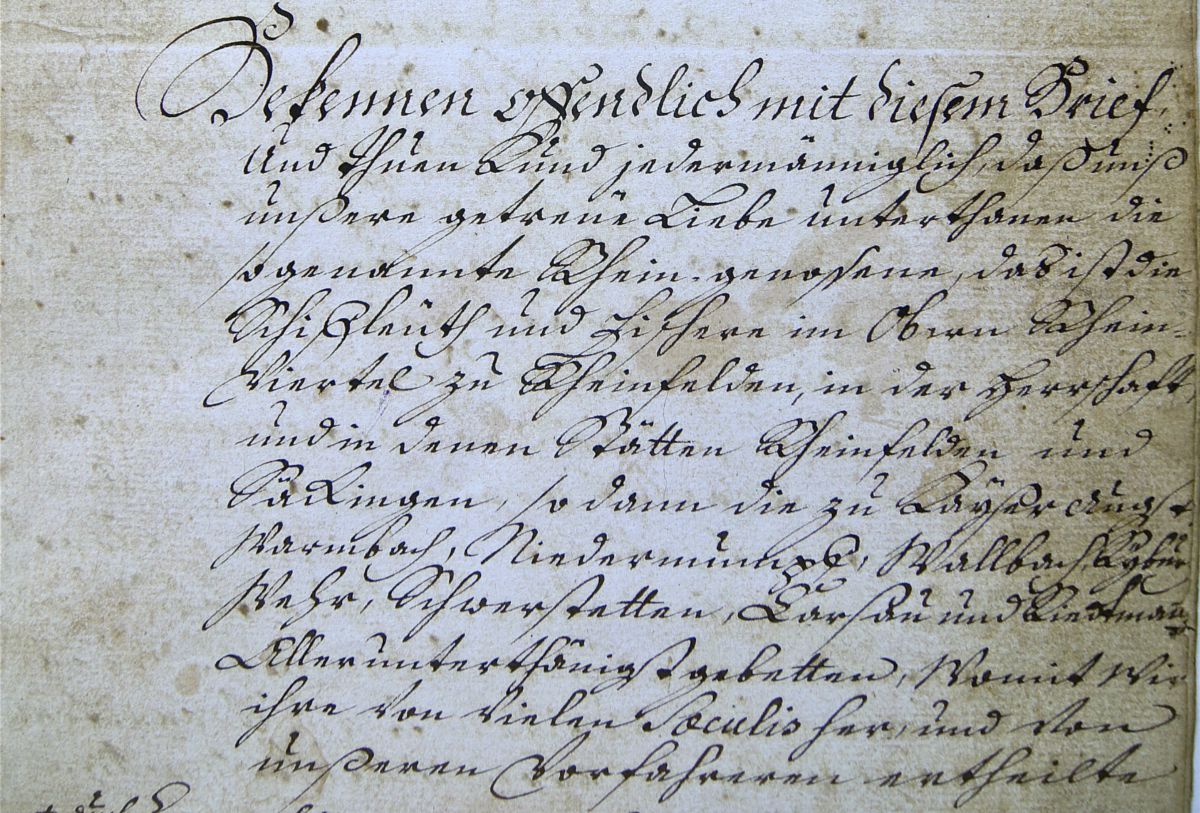 Bekennen offendlich mit diesem Brief,
und thuen Kund jedermänniglich, daß unß
unßere getreüe Liebe unterthanen die
sogenannte Rhein-genossene, das ist die
Schiffleüth und Fischere im Obern Rhein-
Viertel zu Rheinfelden, in der Herrschaft,
und in denen Stätten Rheinfelden und
Säckingen, so dann die zu Kayser Augst
Warmbach, Niedermumpf, Wallbach,
Wehr, Schwerstetten, Carsau und
Allerunterthänigst gebetten, Womit Wir
ihre von vielen Sæculis her, und von
unßeren Vorfahreren ertheilte